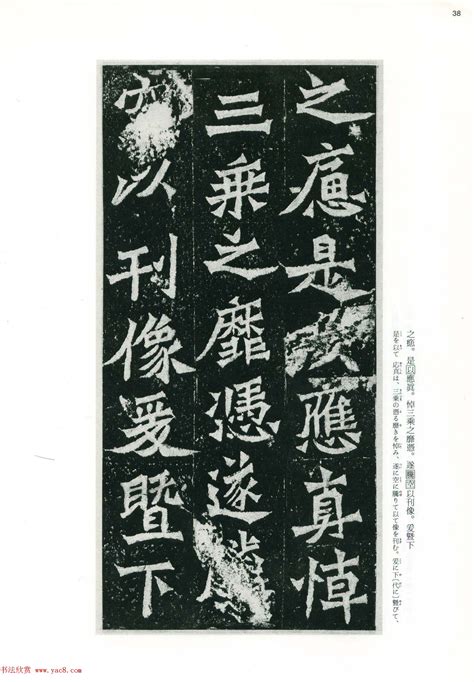 38
之是以應真悼
三乘之靡憑遂騰
空以刊像爰暨下
之。是以應眞。悼三乘之靡憑。遂騰空以刊像。爰暨下
是を以て応真は、三乗の憑る靡きを悼み、遂に空に騰りて以て像を刊む。爰に下〔代に〕暨びて、
书法欣赏 www.yac8.com